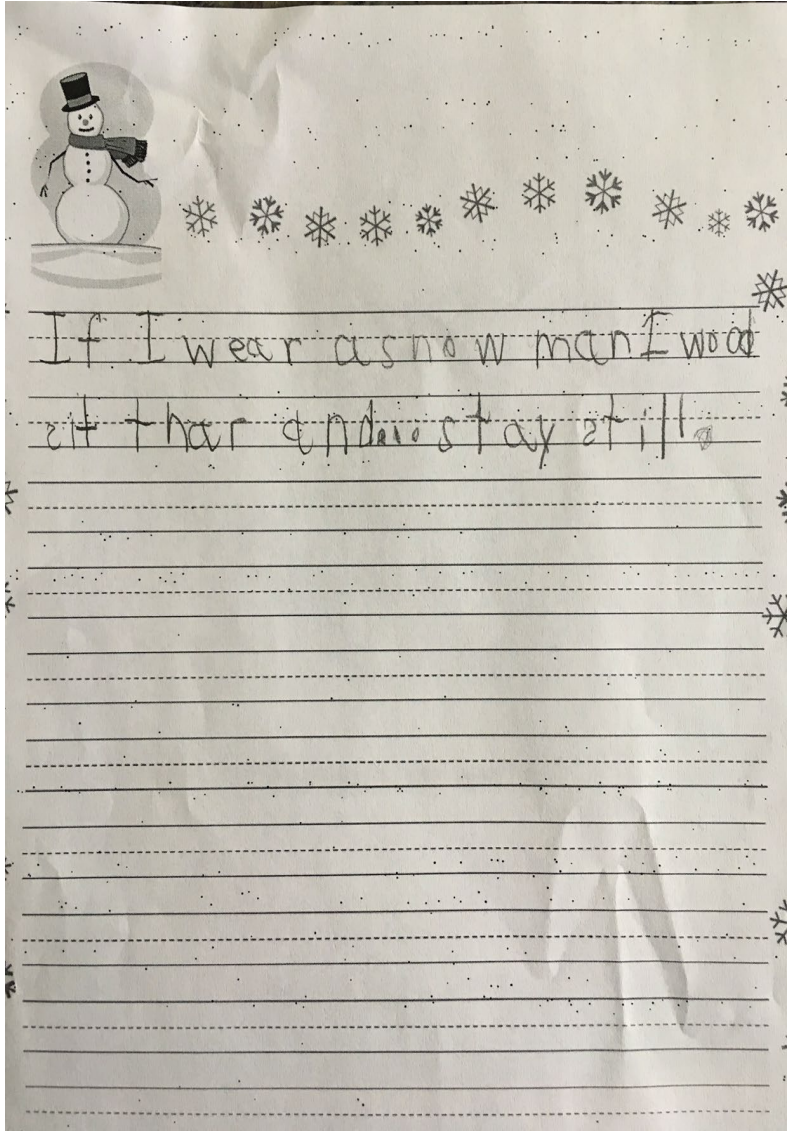 If I wear a snow man I wod
sit thar and... stay still.